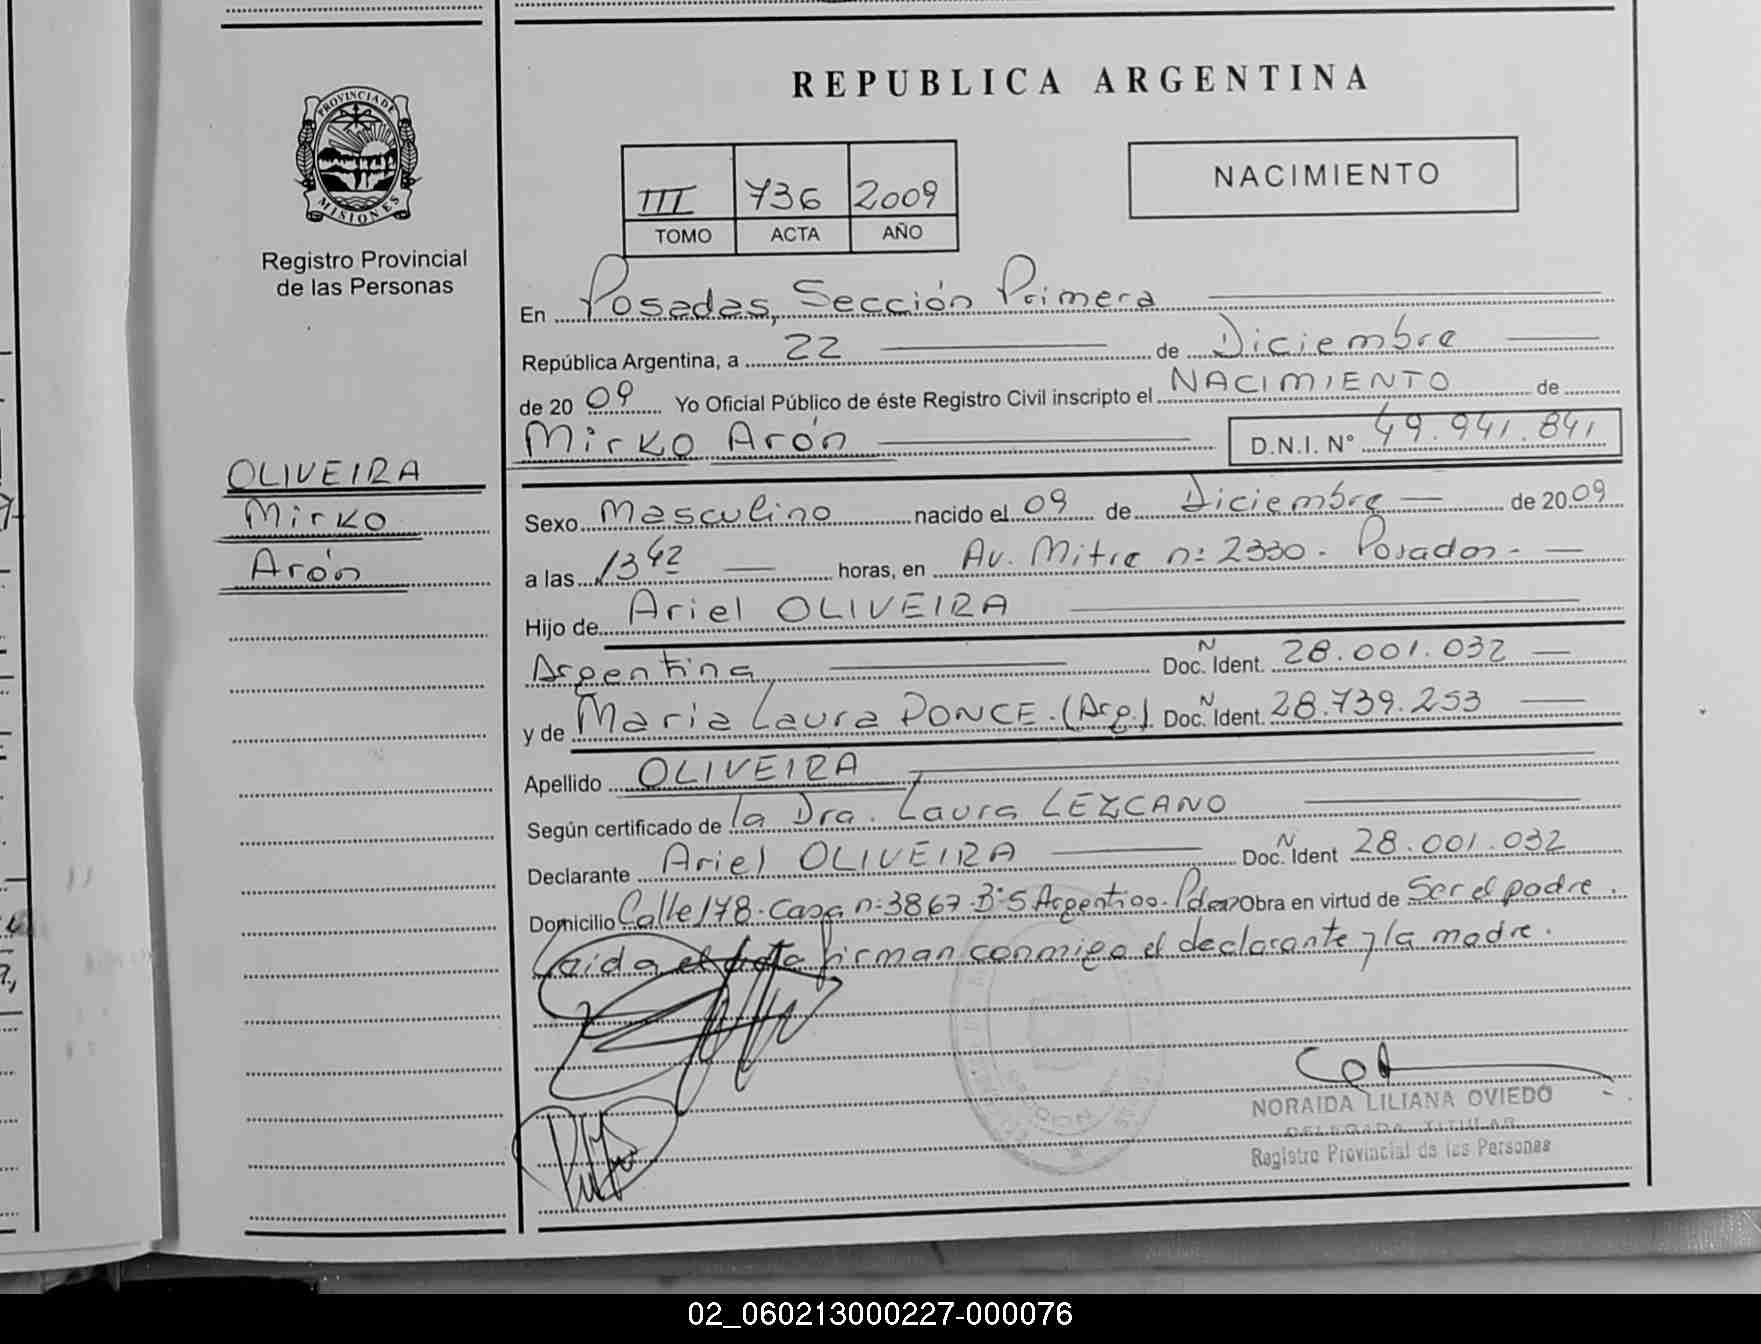 REPUBLICA ARGENTINA
PROVINCIA DE
MISIONES
Registro Provincial
de las Personas
III 736 2009
TOMO ACTA AÑO
NACIMIENTO
En Posadas, Sección Primera
República Argentina, a 22 de Diciembre
de 2009 Yo Oficial Público de éste Registro Civil inscripto el NACIMIENTO de
Mirko Arón D.N.I. N° 49.941.841
OLIVEIRA
Mirko
Arón
Sexo Masculino nacido el 09 de Diciembre de 2009
a las 13 42 horas, en Av. Mitre n: 2330 - Posadas -
Hijo de Ariel OLIVEIRA
Argentina Doc. N Ident. 28.001.032
y de Maria Laura PONCE. (Arg.) Doc. N Ident. 28.739.253
Apellido OLIVEIRA
Según certificado de la Dra. Laura LEZCANO
Declarante Ariel OLIVEIRA Doc. N Ident 28.001.032
Domicilio Calle 178. Casa n: 3867. B° S Argentino. Pdas Obra en virtud de Ser el padre.
Leida el acta firman conmigo el declarante y la madre.
NORAIDA LILIANA OVIEDO
DELEGADA TITULAR
Registro Provincial de las Personas
02_060213000227-000076